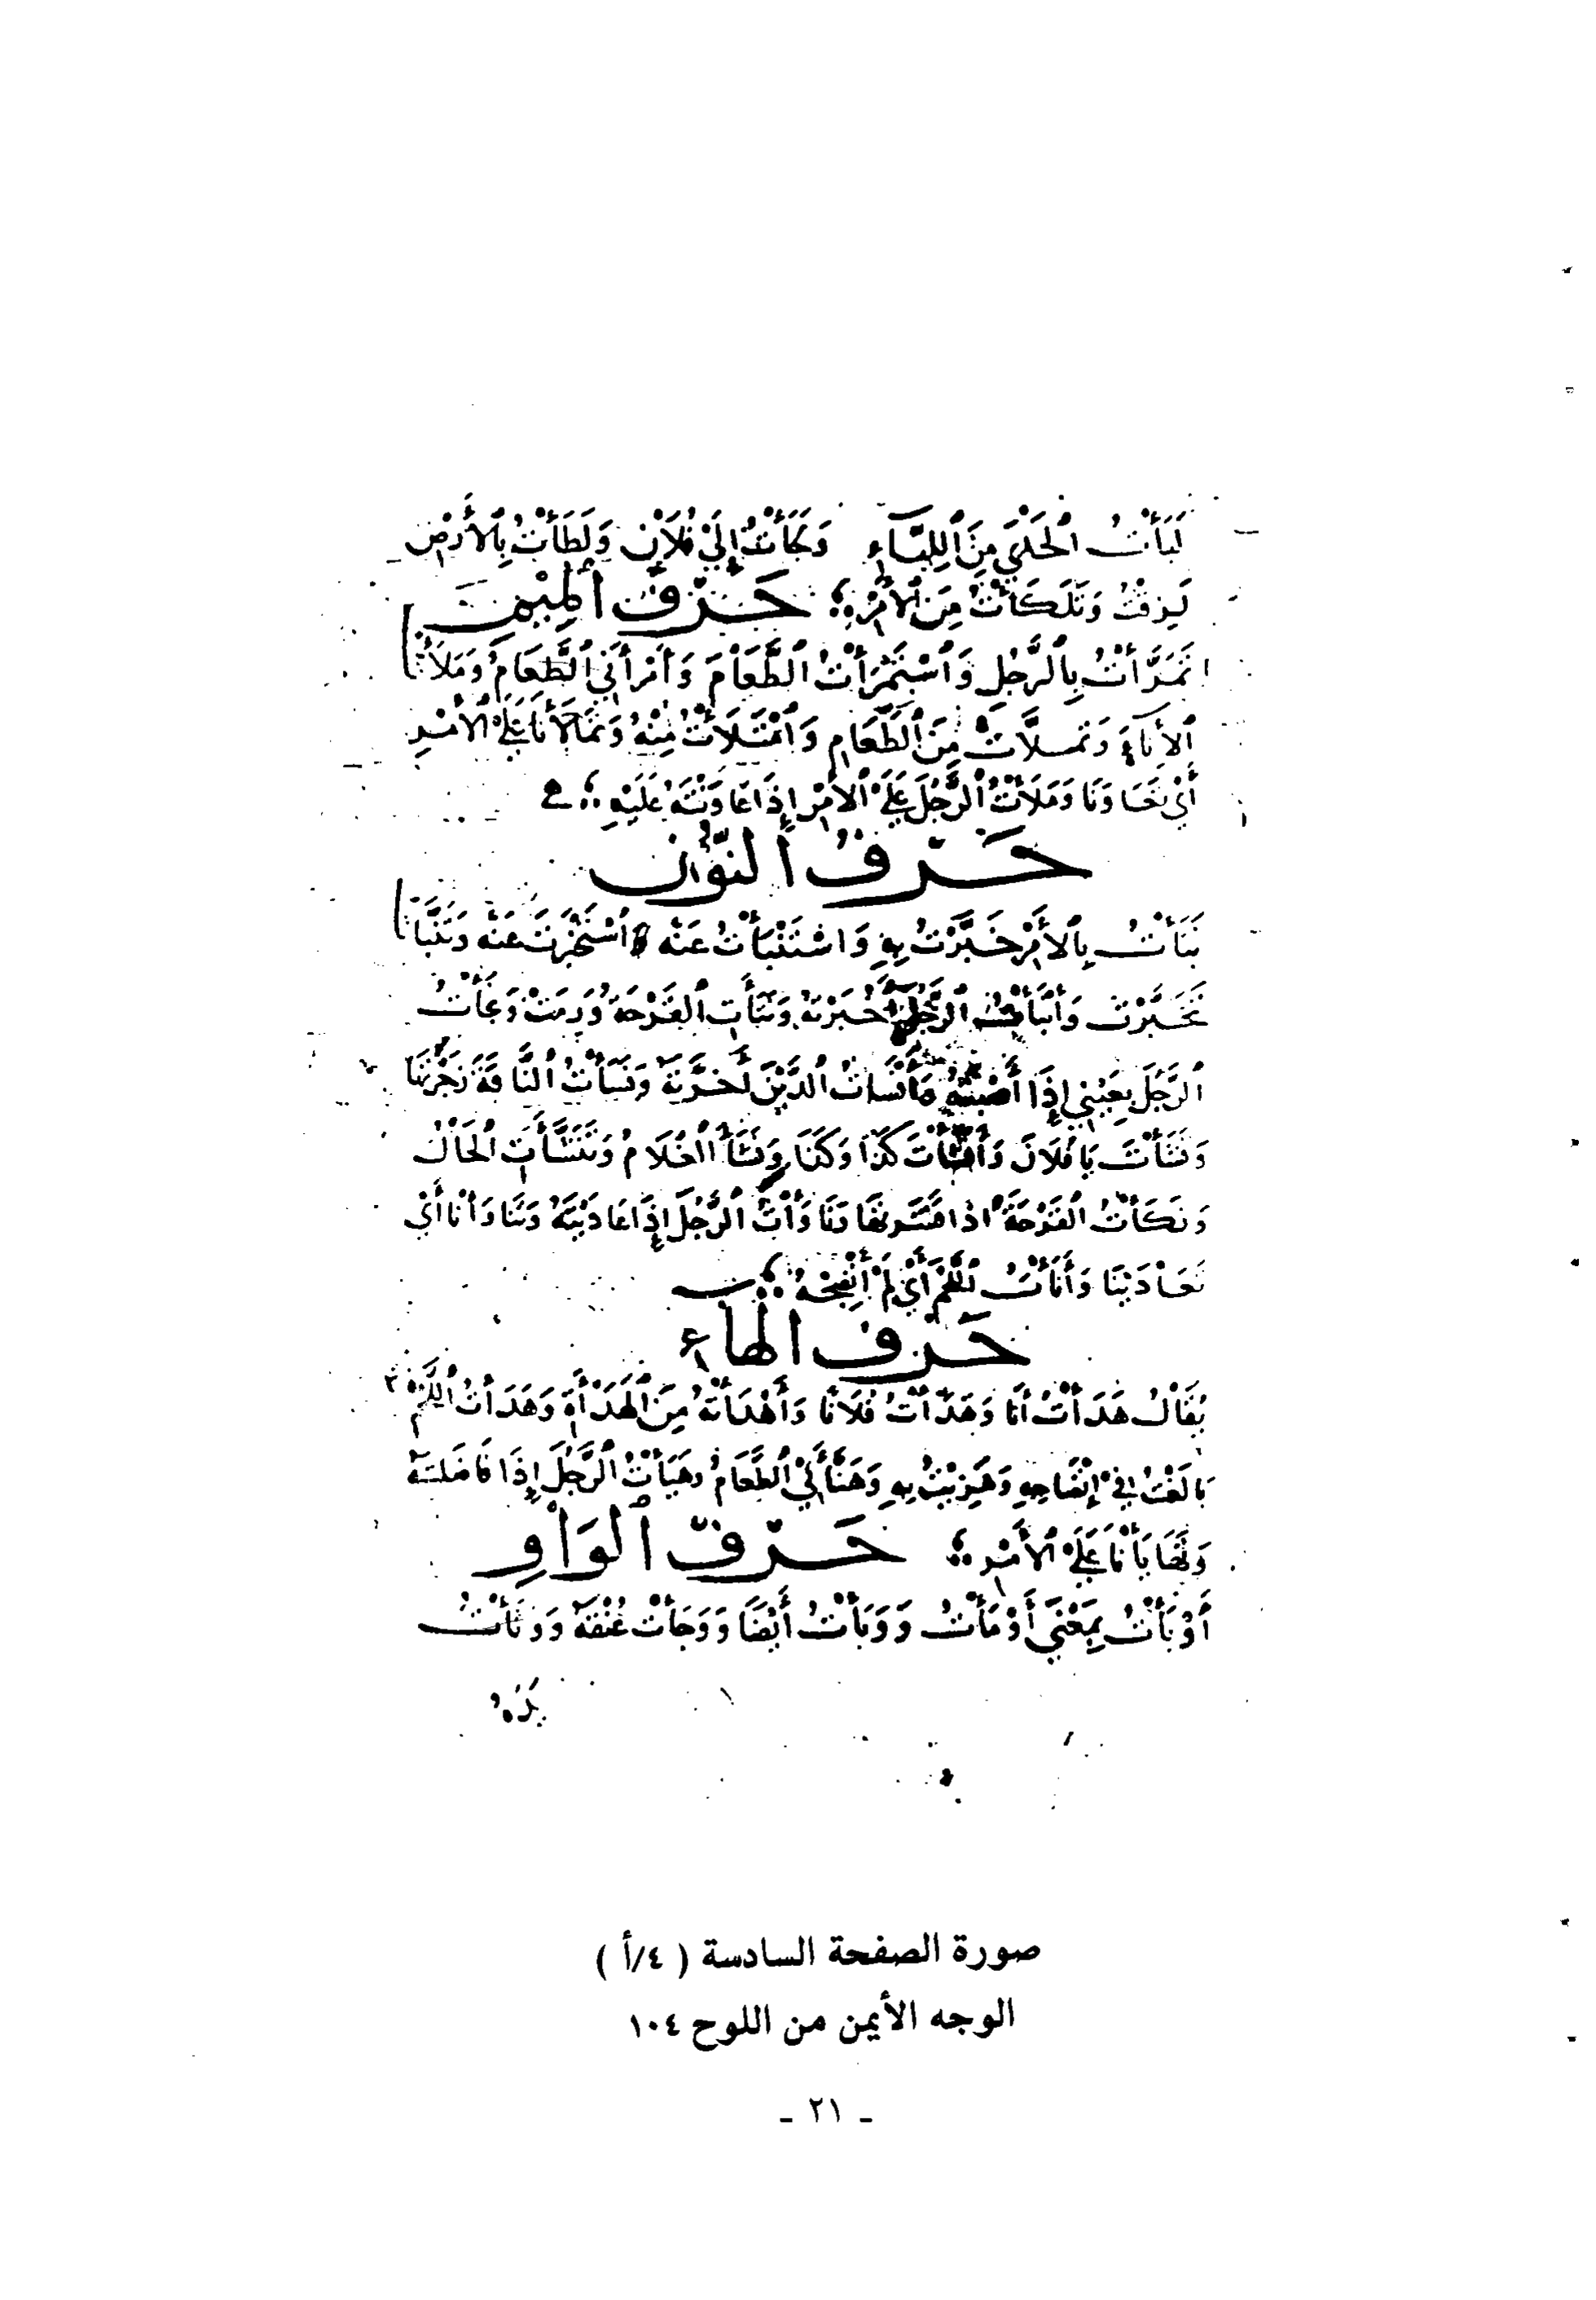 لَبَأْتُ الجَدْيَ مِنَ اللِّبَاءِ وَلَجَأْتُ إِلَى فُلَانٍ وَلَطَأْتُ بِالأَرْضِ
لَزِقْتُ وَتَلَكَّأْتُ مِنَ الأَمْرِ حَرْفُ المِيْمِ
تَمَرَّأْتُ بِالرَّجُلِ وَاسْتَمْرَأْتُ الطَّعَامَ وَأَمْرَأَنِي الطَّعَامُ وَمَلَأْتُ
الأنَاءَ وَتَمَلَّأْتُ مِنَ الطَّعَامِ وَامْتَلَأْتُ مِنْهُ وَتَمَالَأْنَا عَلَى الأَمْرِ
أَيْ تَعَاوَنَّا وَمَلَأْتُ الرَّجُلَ عَلَى الأَمْرِ إِذَا عَاوَنْتَهُ عَلَيْهِ
حَرْفُ النُّوْنِ
نَبَّأْتُ بِالأَمْرِ خَبَّرْتُ بِهِ وَاسْتَنْبَأْتُ عَنْهُ اسْتَخْبَرْتُ عَنْهُ وَتَنَبَّأْتُ
تَخَبَّرْتُ وَأَنْبَأْتُ الرَّجُلَ أَخْبَرْتُهُ وَنَتَأَتِ القَرْحَةُ وَرِمَتْ وَنَجَأْتُ
الرَّجُلَ بِعَيْنِي إِذَا أَصَبْتَهُ وَأَنْسَأْتُ الدَّيْنَ أَخَّرْتَهُ وَنَسَأْتُ النَّاقَةَ زَجَرْتُهَا
وَنَشَأْتَ يَا فُلَانُ وَأَنْشَأْتَ كَذَا وَكَذَا وَنَشَأَ الغُلَامُ وَتَنَشَّأَتِ الحَالُ
وَنَكَأْتُ القَرْحَةَ اذا قَشَرتَهَا وَنَاوَأْتُ الرَّجُلَ إِذَا عَادَيْتَهُ وَتَنَاوَأْنَا أَيْ
تَعَادَيْنَا وَأَنَأْتُ اللَّحْمَ أَيْ لَمْ أُنْضِجْهُ
حَرْفُ الهَاءِ
يُقَالُ هَدَأْتُ أَنَا وَهَدَّأْتُ فُلَانًا وَأَهْدَأْتُهُ مِنَ الهَدْأَةِ وَهَرَأْتُ اللَّحْمَ
بَالَغْتُ فِي إِنْضَاجِهِ وَهَزِئْتُ بِهِ وَهَنَأَنِي الطَّعَامُ وَهَيَأْتُ الرَّجُلَ إِذَا
وَتَهَايَأْنَا عَلَى الأَمْرِ حَرْفُ الوَاوِ
أَوْبَأْتُ بِمَعْنَى أَوْمَأْتُ وَوَبَأْتُ أَيْضًا وَوَجَأْتُ عُنُقَهُ وَوَثَأْتُ
يَدَهُ
صورة الصفحة السادسة ( ٤/أ )
الوجه الأيمن من اللوح ١٠٤
ـ ٢١ ـ